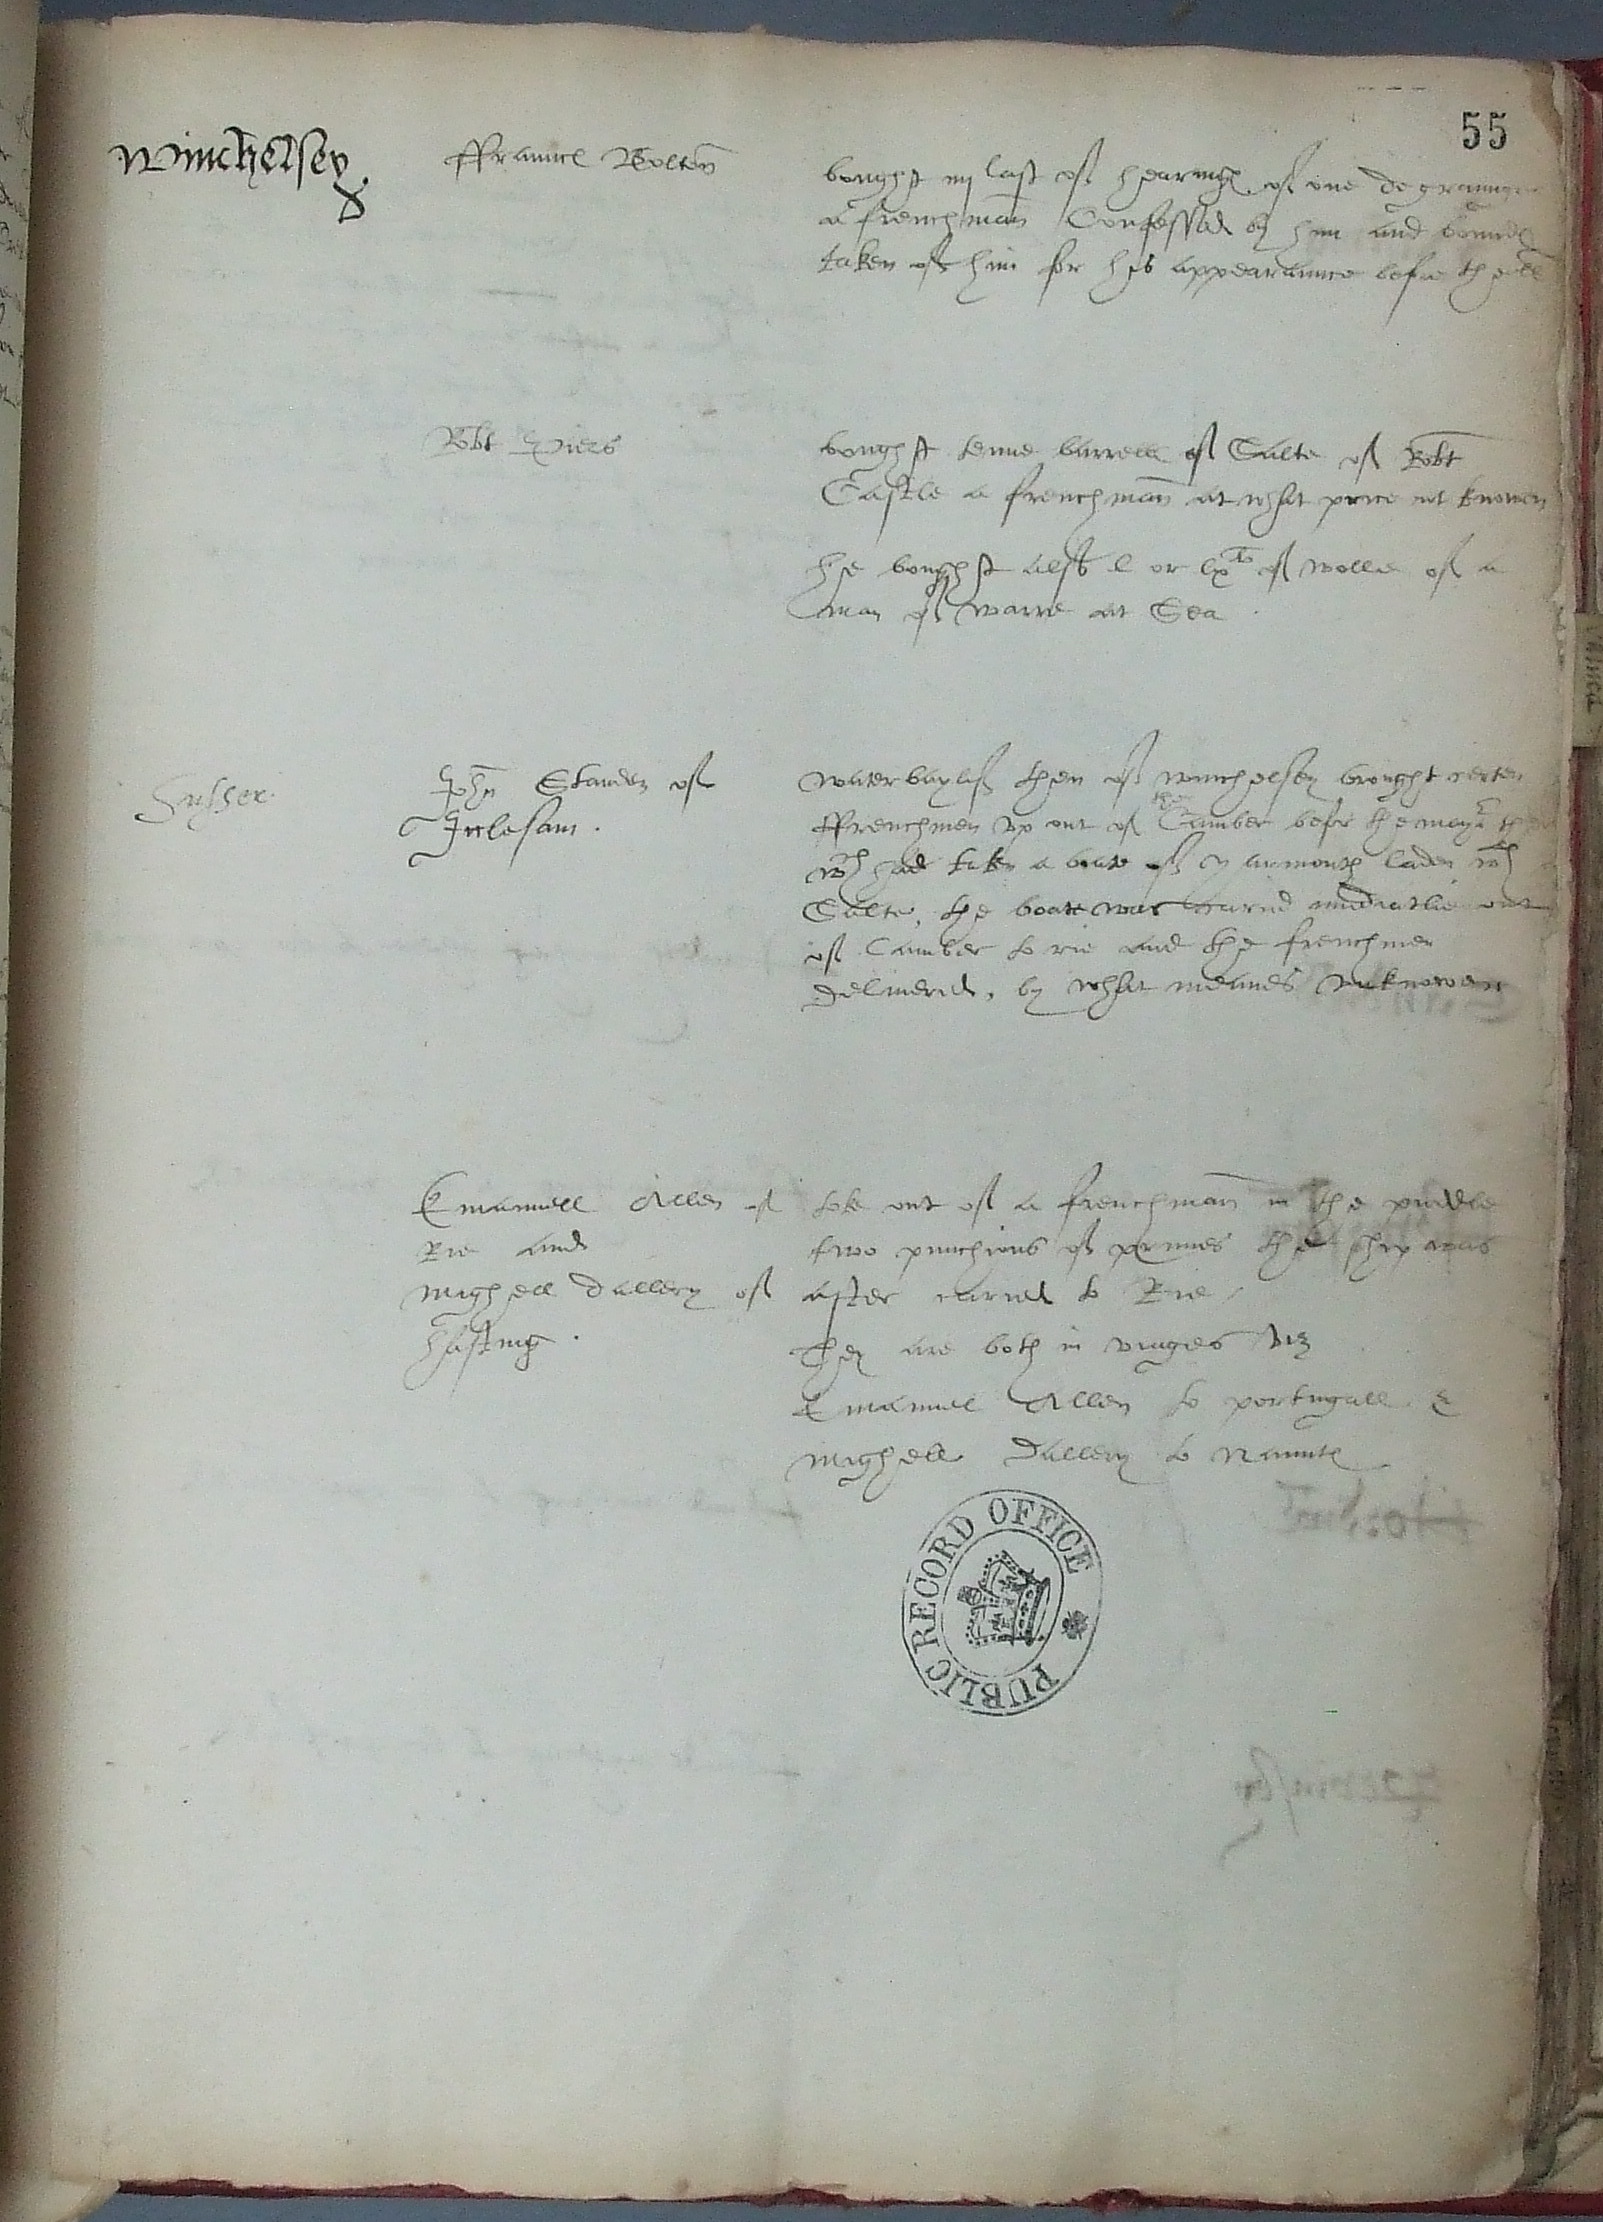 55
Winchelsey
ffrauncℓ Bolton
bought iiij last of hearingℓ of one degrainge
a frenchman Confessed by him and bound
taken of him for his appearaunce before the
Robt Piers
bought tenne barrell of Salte of Robt
Castle a frenchman at what price not knowen
he bought also l or lx of wolle of a
man of warre at Sea
Sussex
John Standen of
Icclesam .
waterbaylif then of winchelsey brought certen
ffrenchmen vp out of the Camber before the mayor then
wch had taken a boate of yarmouth laden wth
Salte, the boate was caried imediatlie out
of Camber to rie and the frenchmen
deliuered, by what meanes vnknowen
Emanuell Allen of
Rie and
Mighell dallery of
hasting .
toke out of a frenchman in the puddle
two punchions of prunes the ship was
after caried to Rie /
They are both in viages viz
Emanuel Allen to portugall &
Mighell Dallery to Nauntℓ
PUBLIC RECORD OFFICE